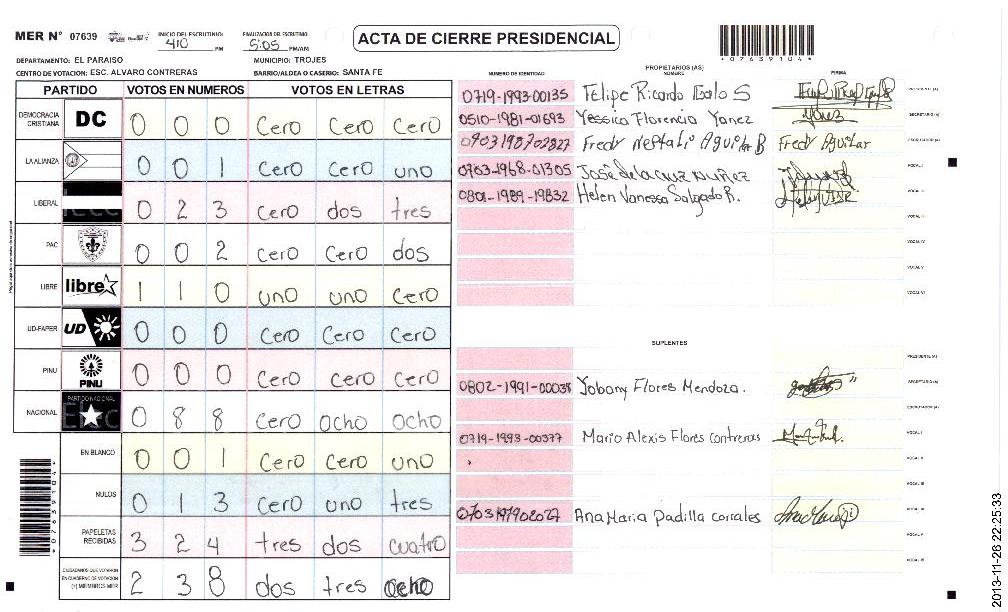 MER N° 07639 INICIO DEL ESCRUTINIO: 410 PM FINALIZACION DEL ESCRUTINIO 5:05 PM/AM
ACTA DE CIERRE PRESIDENCIAL
*07639104*
DEPARTAMENTO: EL PARAISO MUNICIPIO: TROJES
CENTRO DE VOTACION: ESC. ALVARO CONTRERAS BARRIO/ALDEA O CASERIO: SANTA FE
PARTIDO VOTOS EN NUMEROS VOTOS EN LETRAS
DEMOCRACIA CRISTIANA DC 0 0 0 Cero Cero Cero
LA ALIANZA 0 0 1 Cero Cero uno
LIBERAL 0 2 3 Cero dos tres
PAC 0 0 2 Cero Cero dos
LIBRE libre 1 1 0 uno uno Cero
UD-FAPER UD 0 0 0 Cero Cero Cero
PINU PINU 0 0 0 Cero Cero Cero
NACIONAL PARTIDO NACIONAL 0 8 8 Cero ocho ocho
EN BLANCO 0 0 1 Cero Cero uno
NULOS 0 1 3 Cero uno tres
PAPELETAS RECIBIDAS 3 2 4 tres dos cuatro
CIUDADANOS QUE VOTARON EN CUADERNO DE VOTACION (+) MIEMBROS MER 2 3 8 dos tres ocho
*07639104*
PROPIETARIOS (AS)
NUMERO DE IDENTIDAD NOMBRE FIRMA
0719-1993-00135 Felipe Ricardo Galo S PRESIDENTE (A)
0510-1981-01693 Yessica Florencia Yanez Yanez SECRETARIO (A)
0903198702827 Fredy Neftali Aguilar B Fredy Aguilar ESCRUTADOR (A)
0703-1968-01305 Jose de la cruz nuñez VOCAL I
0801-1989-19832 Helen Vanessa Salgado R. VOCAL II
VOCAL III
VOCAL IV
VOCAL V
VOCAL VI
SUPLENTES
PRESIDENTE (A)
0802-1991-00038 Jobany Flores Mendoza. SECRETARIO (A)
ESCRUTADOR (A)
0719-1993-00377 Mario Alexis Flores Contreras VOCAL I
VOCAL II
VOCAL III
0703197902027 Ana Maria Padilla corrales VOCAL IV
VOCAL V
VOCAL VI
2013-11-26 22:25:33